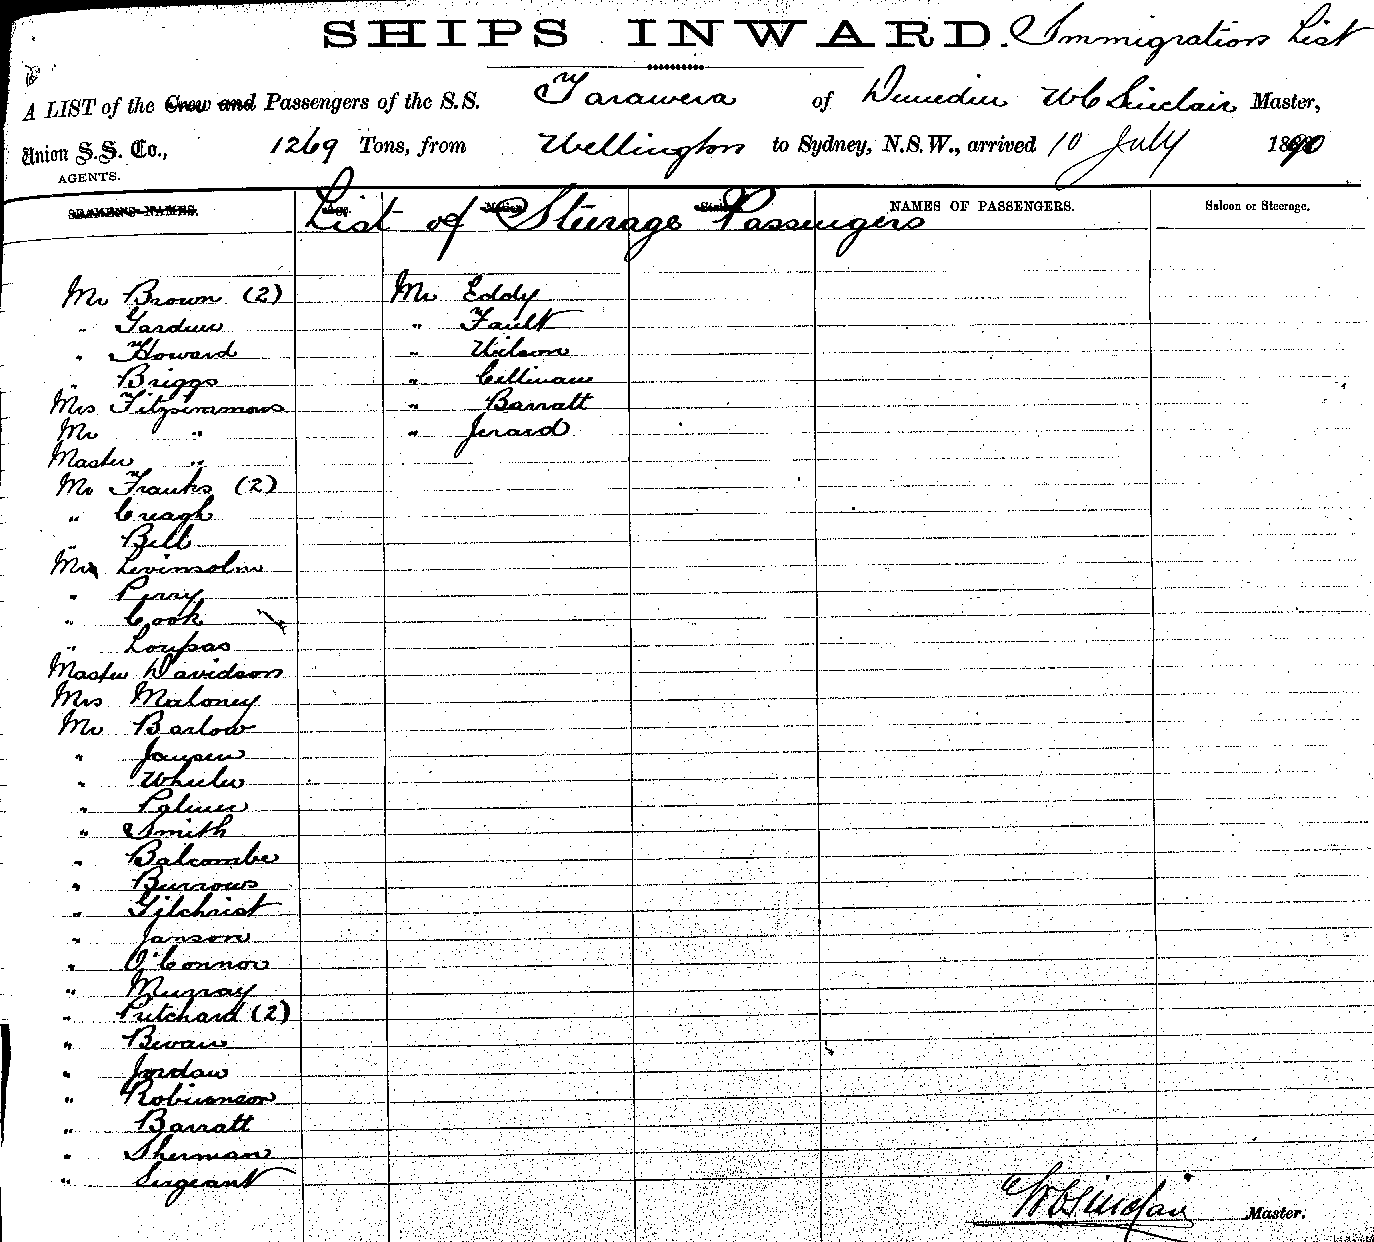 SHIPS INWARD. Immigration List
A LIST of the Crew and Passengers of the S.S. Tarawera of Dunedin W C Sinclair Master,
Union S.S. Co., 1269 Tons, from Wellington to Sydney, N.S.W., arrived 10 July 1890
AGENTS.
SEAMENS NAMES. List of Steerage Passengers NAMES OF PASSENGERS. Saloon or Steerage.
Mr Brown (2) Mr Eddy
" Gardner " Fault
" Howard " Wilson
" Briggs " Cillinane
Mrs Fitzsimmons " Barratt
Mr " " Jerard
Master "
Mr Franks (2)
" Creagh
" Bell
Mr Levinsohn
" Perry
" Cook
" Loupas
Master Davidson
Mrs Maloney
Mr Barlow
" Jaupen
" Wheeler
" Palmer
" Smith
" Balcombe
" Burrows
" Gilchrist
" Janson
" O'Connor
" Murray
" Pritchard (2)
" Bevan
" Jordan
" Robinson
" Barratt
" Sherman
" Sergeant
W C Sinclair Master.